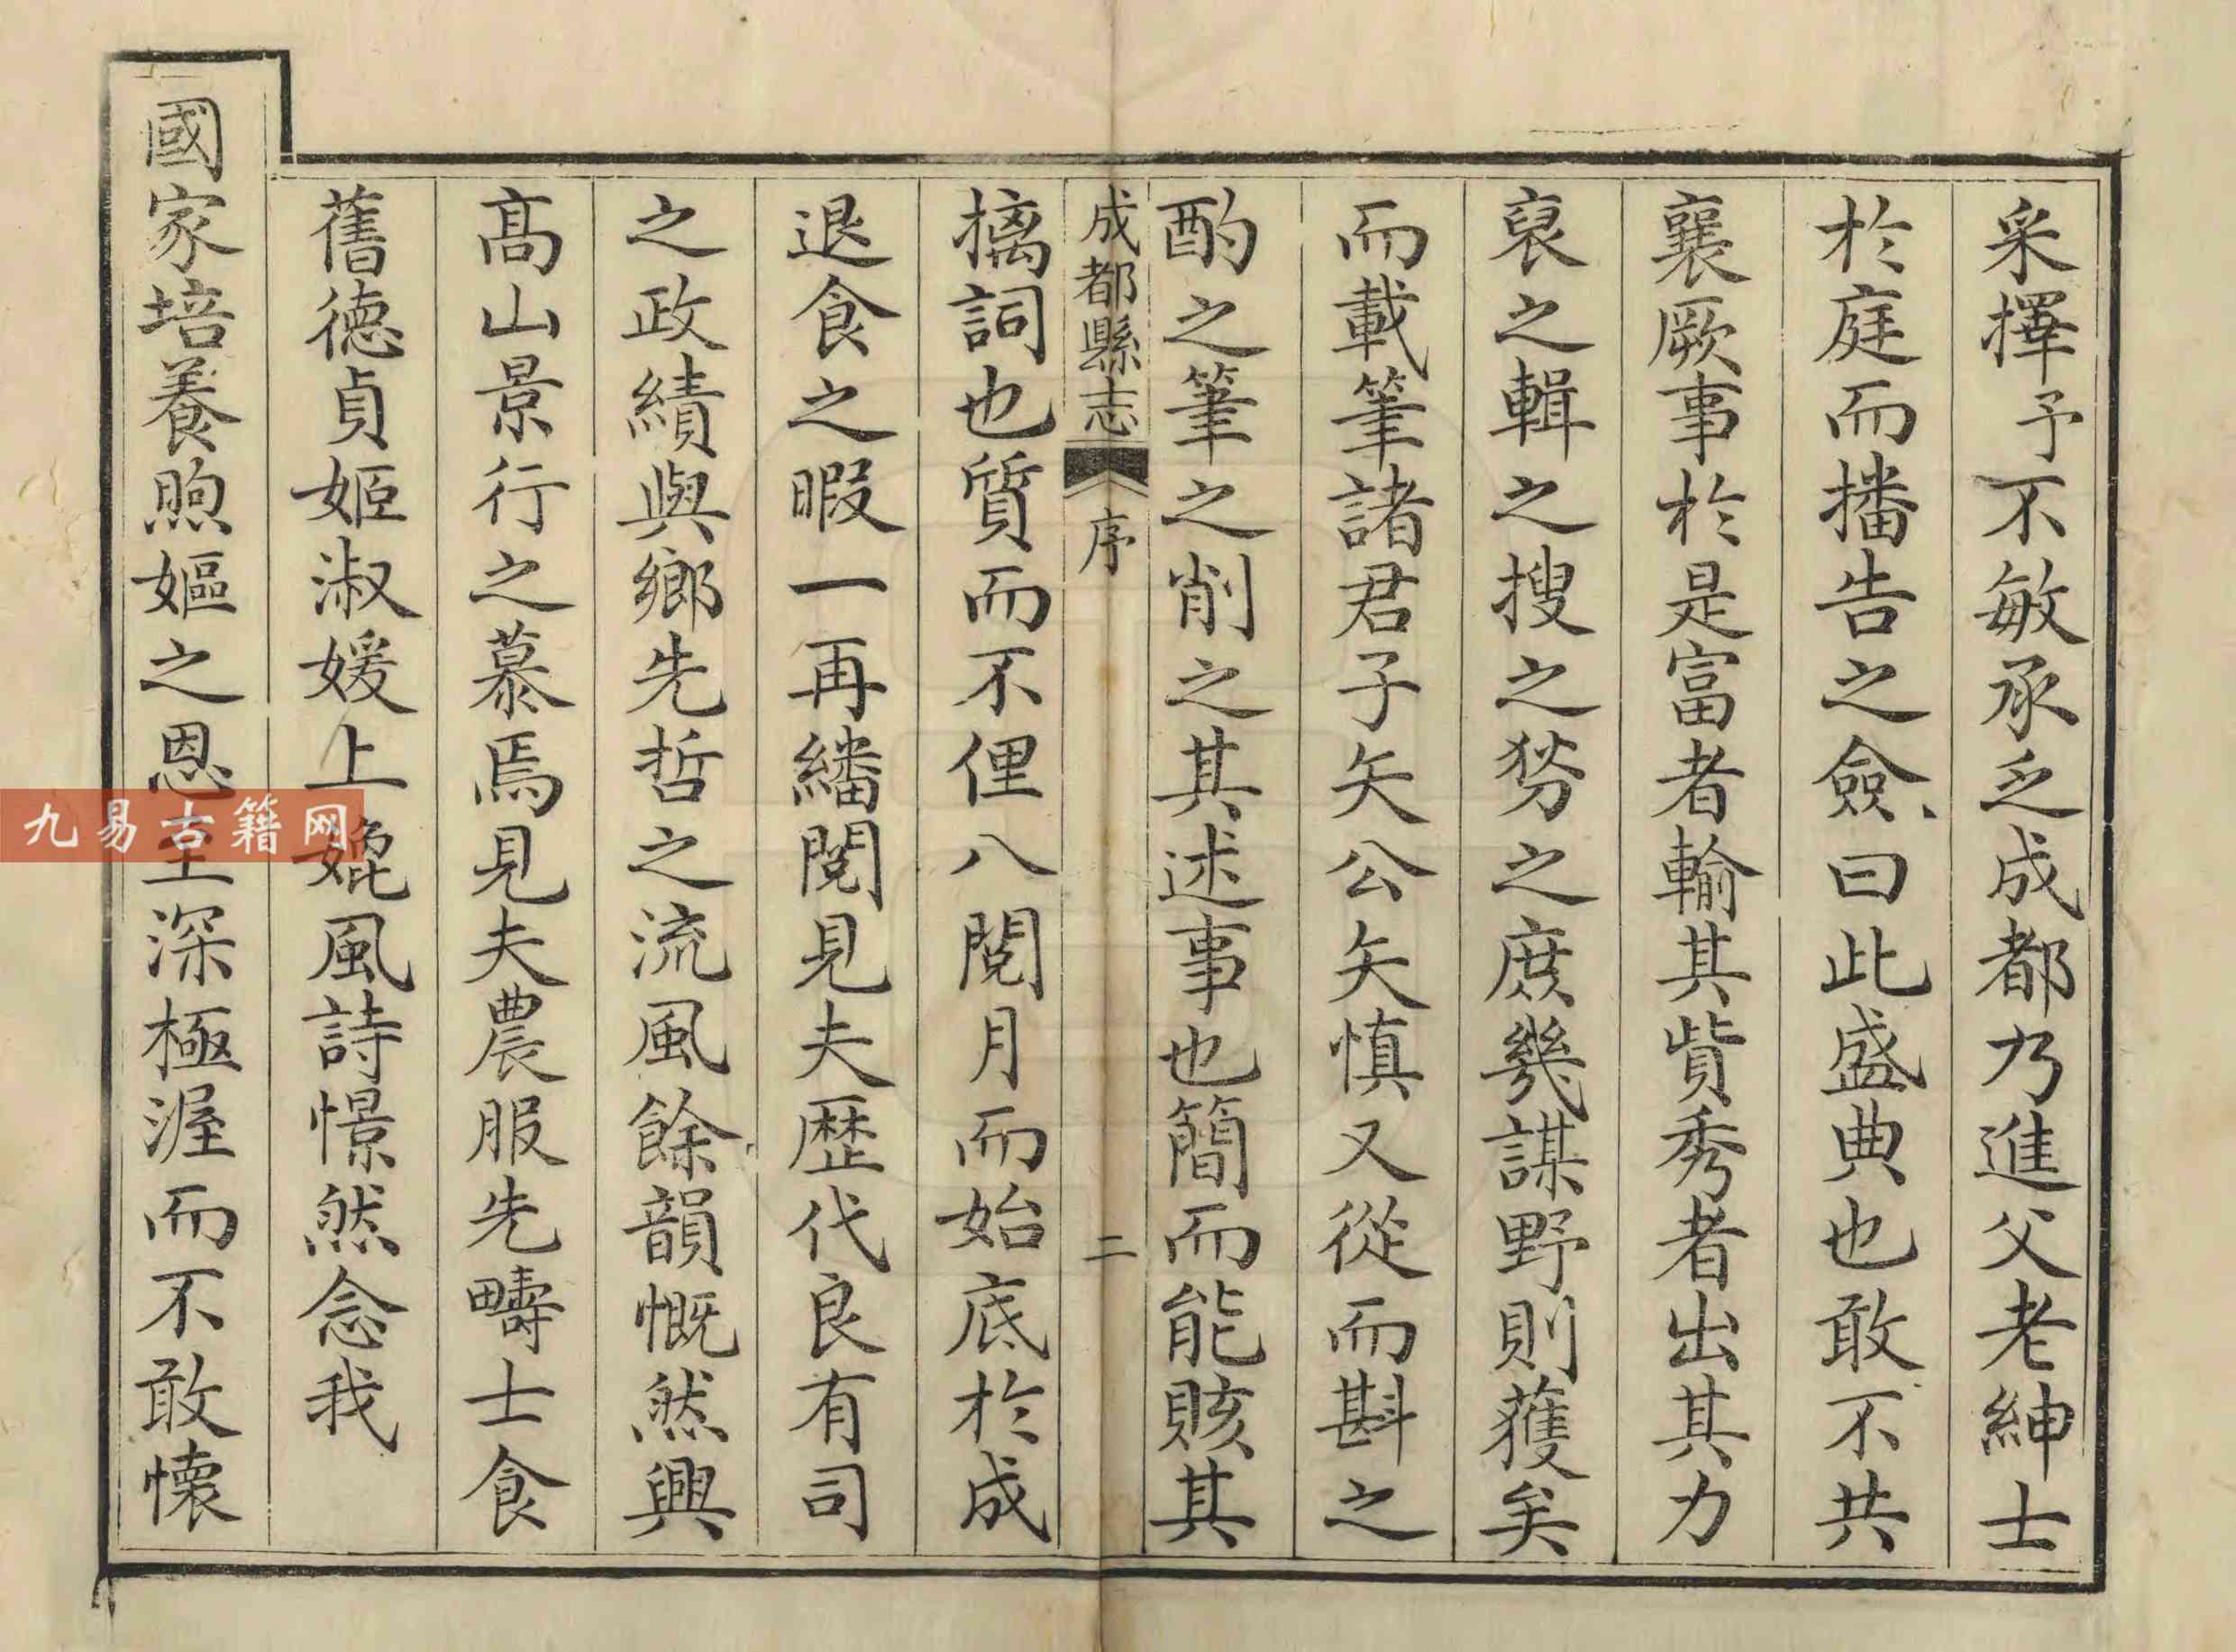 采擇予不敏承乏成都乃進父老紳士
於庭而播告之僉曰此盛典也敢不共
襄厥事於是富者輸其貲秀者出其力
裒之輯之搜之勞之庶幾謀野則獲矣
而載筆諸君子矢公矢慎又從而斟之
酌之筆之削之其述事也簡而能賅其
成都縣志 序 二
摛詞也質而不俚八閱月而始底於成
退食之暇一再繙閱見夫歷代良有司
之政績與鄉先哲之流風餘韻慨然興
高山景行之慕焉見夫農服先疇士食
舊德貞姬淑媛上媲風詩憬然念我
國家培養煦嫗之恩至深極渥而不敢懷
九易古籍网